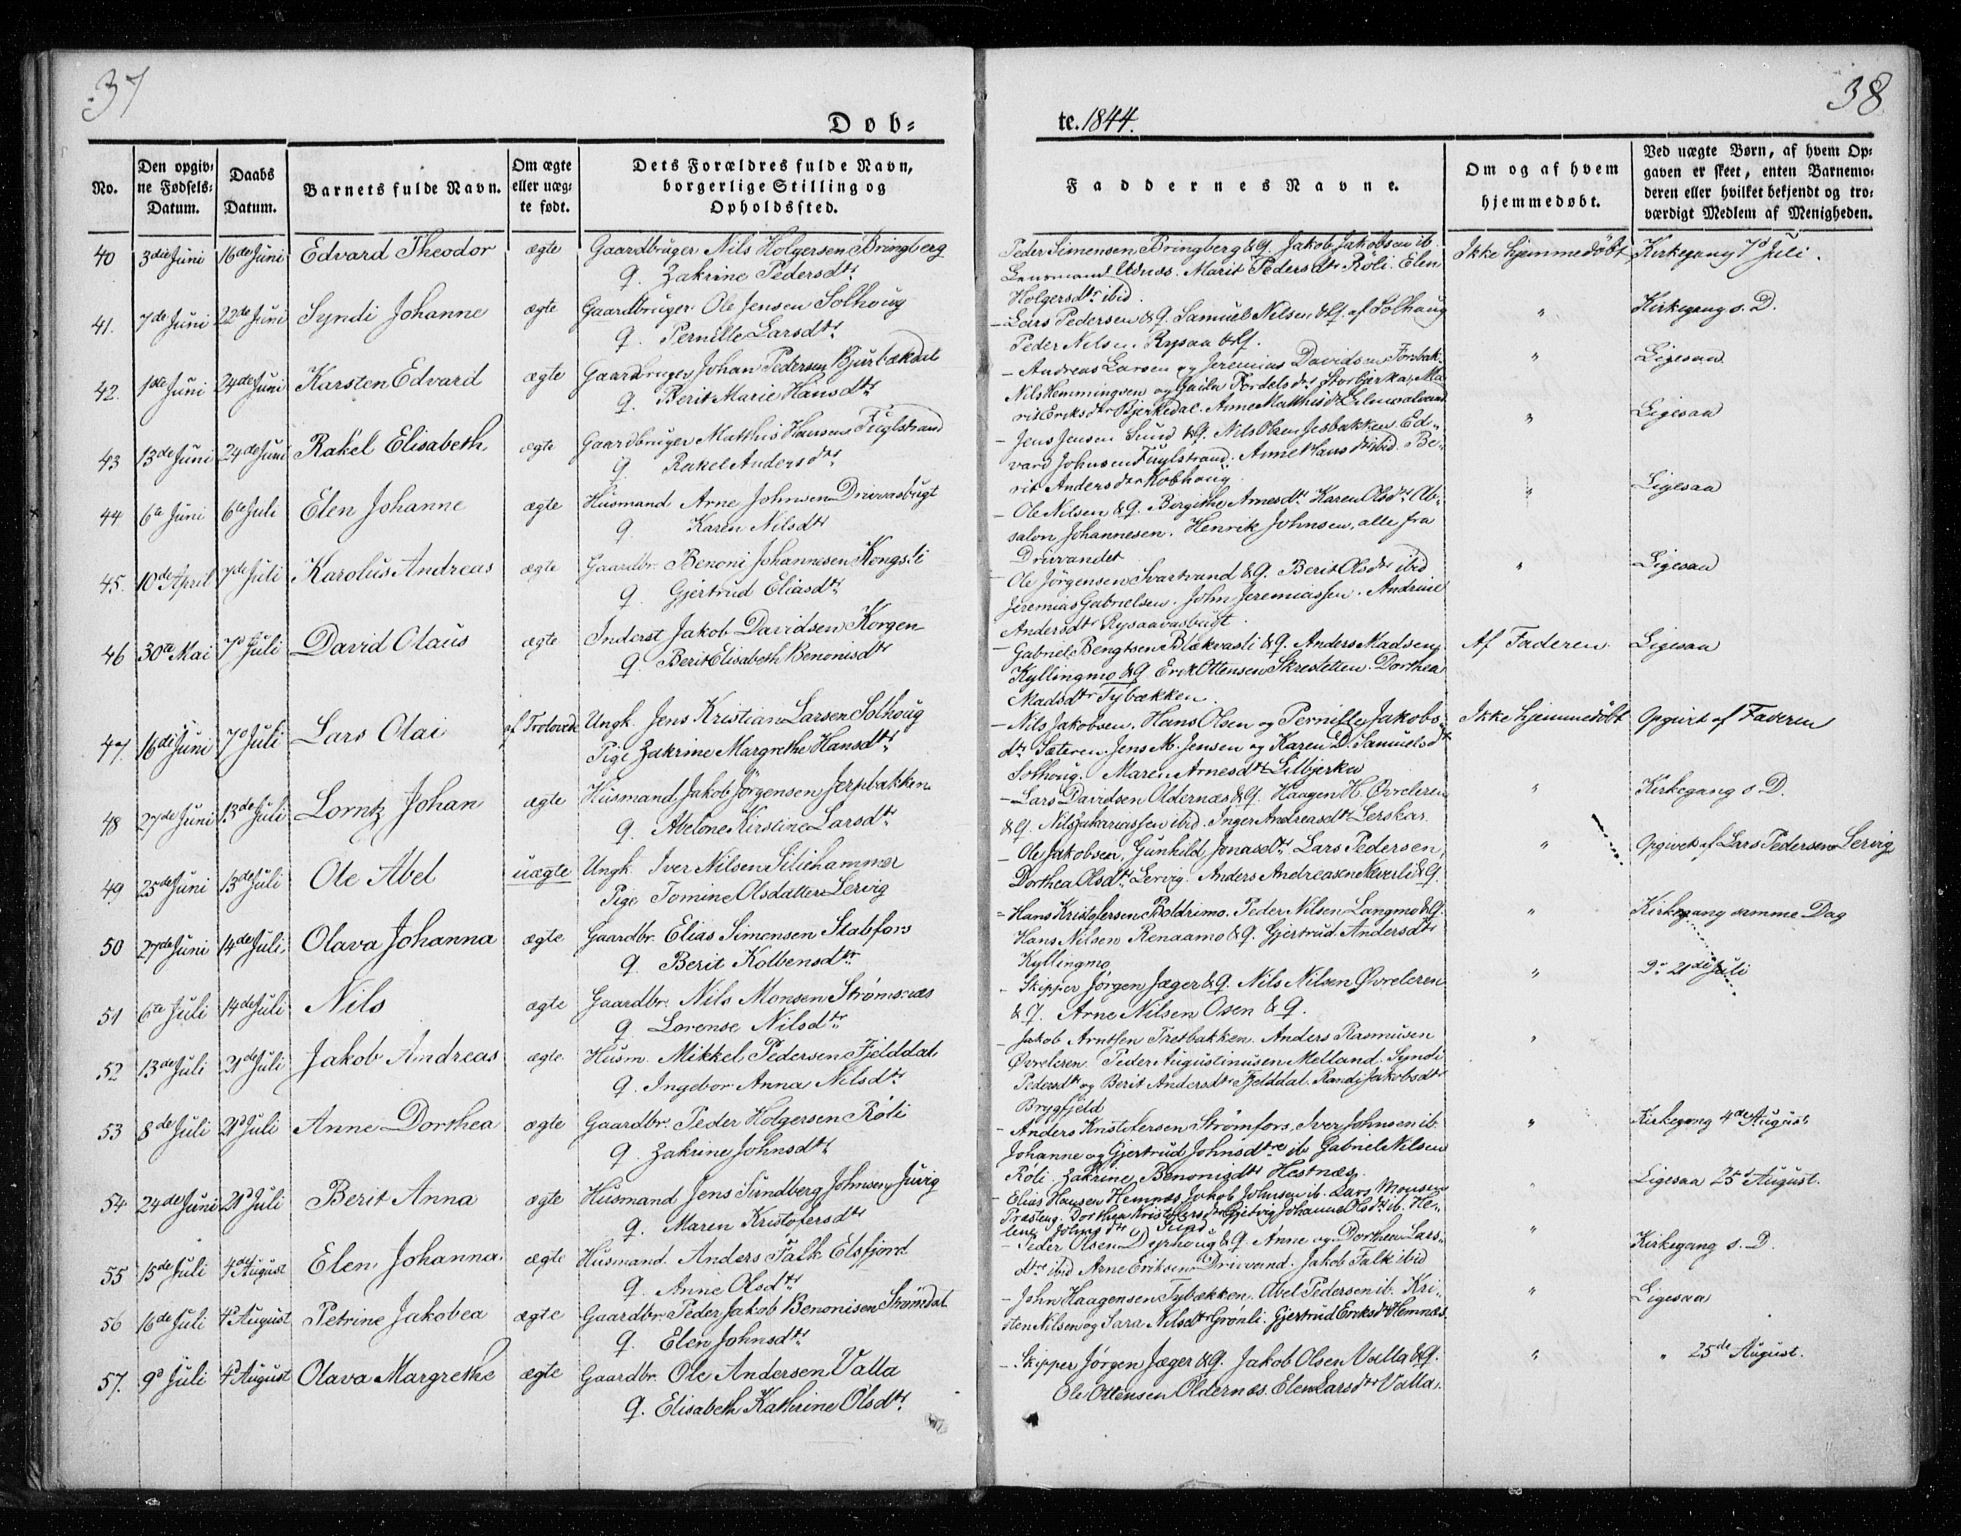 37
38
Døb-
te. 1844.
No.
Den opgiv-
ne Fødsels-
Datum.
Daabs
Datum.
Barnets fulde Navn.
Om ægte
eller uæg-
te født.
Dets Forældres fulde Navn,
borgerlige Stilling og
Opholdssted.
Faddernes Navne.
Om og af hvem
hjemmedøbt.
Ved uægte Børn, af hvem Op-
gaven er skeet, enten Barnemo-
deren eller hvilket bekjendt og tro-
værdigt Medlem af Menigheden.
40 3die Juni 16de Juni Edvard Theodor ægte Gaardbruger Nils Holgersen Bringberg
q. Zakrine Pedersdtr
Peder Simensen Bringberg & q. Jakob Jakobsen ib.
Lensmand Utnæs. Marit Pedersdtr Røli. Elen
Holgersdtr ibid.
Ikke hjemmedøbt Kirkegang 7d Juli.
41. 7de Juni 22de Juni Syndi Johanne ægte Gaardbruger Ole Jensen Solhoug
q. Pernille Larsdtr
- Lars Pedersen & q. Samuel Nilsen & q. af Solhoug
Peder Nilsen Rysaa & q.
" Kirkegang s. D.
42. 1ste Juni 24de Juni Karsten Edvard ægte Gaardbruger Johan Pedersen Bjurbækdal
q. Berit Marie Hansdtr
- Andreas Larsen og Jeremias Davidsen Forsbak.
Nils Hemmingsen og Tordelsdtr Storbjerka, Ma-
rit Eriksdtr Bjerkedal. Anne Matthisdtr
" Ligesaa
43 13de Juni 24de Juni Rakel Elisabeth ægte Gaardbruger Matthis Hansen Fuglstrand
q Rakel Andersdtr
- Jens Jensen Sund & q. Nils Olsen Jesbakken Ed-
vard Johnsen Fuglstrand. Anne Hansdtr ibid. Be-
rit Andersdtr Kobhoug.
" Ligesaa
44 6te Juni 6te Juli Elen Johanne ægte Husmand Arne Johnsen Drivvasbugt
q. Karen Nilsdtr
- Ole Nilsen & q. Bergithe Arnesdtr Karen Olsdtr Ab-
salon Johannesen. Henrik Johnsen, alle fra
Drivvandet
" Ligesaa
45. 10de April 7de Juli Karolus Andreas ægte Gaardbr. Benoni Johannesen Kongsli
q. Gjertrud Eliasdtr
- Ole Jørgensen Svartvand & q. Berit Olsdtr ibid
Jeremias Gabrielsen. John Jeremiassen. Andrine
Andersdtr Rysaavasbugt.
" Ligesaa
46 30te Mai 7d Juli David Olaus ægte Inderst Jakob Davidsen Korgen
q. Berit Elisabeth Benonisdtr
- Gabriel Bengtsen Blækvasli & q. Anders Madsen
Kyllingmo & q Erik Ottensen Skresletten. Dorthea
Madsdtr Tybækken.
Af Faderen Ligesaa
47. 16de Juni 7d Juli Lars Olai af Trolovede Ungk. Jens Kristian Larsen Solhoug
Pige Zakrine Margrethe Hansdtr
- Nils Jakobsen. Hans Olsen og Pernille Jakobs-
dtr Sæteren. Jens M. Jensen og Karen D. Samuelsdtr
Solhoug. Maren Arnesdtr Lilbjerka
Ikke hjemmedøbt Opgivet af Faderen
48 27de Juni 13de Juli Lorntz Johan ægte Husmand Jakob Jørgensen Jerpbakken
q. Abelone Kirstine Larsdtr
- Lars Davidsen Oldernæs & q. Haagen H. Øvreleren
& q. Nils Zakariassen ibid. Inger Andreasdtr Lerskar.
" Kirkegang s D.
49 25de Juni 13de Juli Ole Abel uægte Ungk. Iver Nilsen Siliehammer
Pige Tomine Olsdatter Lervig
- Ole Jakobsen, Gunhild Jonasdtr Lars Pedersen,
Dorthea Olsdtr Lervig. Anders Andreasen Neverli & q.
" Opgivet af Lars Pedersen Lervig
50 27de Juni 14de Juli Olava Johanna ægte Gaardbr. Elias Simensen Stabfors
q Berit Kolbensdtr
- Hans Kristofersen Boldrimo. Peder Nilsen Langmo & q.
Hans Nilsen Renaamo & q. Gjertrud Andersdtr
Kyllingmo
" Kirkegang samme Dag
51 6te Juli 14de Juli Nils ægte Gaardbr. Nils Monsen Strømsnæs
q Lorense Nilsdtr
- Skipper Jørgen Jæger & q. Nils Nilsen Øvreleren
& q. Arne Nilsen Osen & q.
" Do 21de Juli
52 13de Juli 21de Juli Jakob Andreas ægte Husm. Mikkel Pedersen Fjelddal
q. Ingebor Anna Nilsdtr
- Jakob Arntsen Tretbakken. Anders Rasmusen
Øvreleren. Peder Augustinusen Melland. Syndi
Pedersdtr og Berit Andersdtr Fjelddal. Randi Jakobsdtr
Brygfjeld
"
53 8de Juli 21d Juli Anne Dorthea ægte Gaardbr. Peder Holgersen Røli
q. Zakrine Johnsdtr
- Anders Kristofersen Strømfors. Iver Johnsen ib.
Johanne og Gjertrud Johnsdtre ib Gabriel Nilsen
Røli. Zakrine Benonisdtr Hestnæs
" Kirkegang 4de August
54 24de Juni 21d Juli Berit Anna ægte Husmand Jens Sundberg Johnsen Juvig
q. Maren Kristofersdtr
- Elias Hansen Hemnæs Jakob Johnsen ib. Lars Monsen
Præsteng. Dorthea Kristofersdtr Gjetvig Johanne Olsdtr ib. He-
lene Johnsdtr Sund
" Ligesaa 25de August.
55 15de Juli 4de August Elen Johanna ægte Husmand Anders Falk Elsfjord
q. Anne Olsdtr
- Peder Olsen Dyrhoug & q. Anne og Dorthea Lars-
dtre ibid Arne Eriksen Drivvand. Jakob Falk ibid
" Kirkegang s. D.
56 16de Juli 4d August Petrine Jakobea ægte Gaardbr. Peder Jakob Benonisen Strømdal
q. Elen Johnsdtr
- John Haagensen Tybækken. Abel Pedersen ib. Kri-
sten Nilsen og Sara Nilsdtr Grønli. Gjertrud Eriksdtr Hemnæs.
" Ligesaa
57. 9d Juli 4d August Olava Margrethe ægte Gaardbr. Ole Andersen Valla
q. Elisabeth Katherine Olsdtr
- Skipper Jørgen Jæger & q. Jakob Olsen Valla & q.
Ole Ottensen Oldernæs. Elen Larsdtr Valla.
" " 25de August.